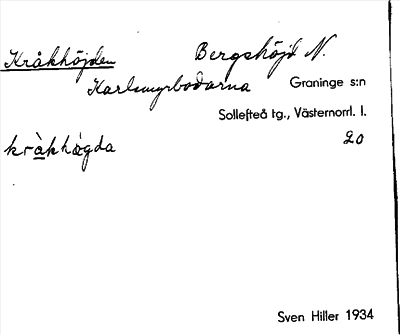 Kråkhöjden Bergshöjd N.
Karlsmyrbodarna Graninge s:n
Sollefteå tg., Västernorrl. l.
kràkhǿgda 20
Sven Hiller 1934